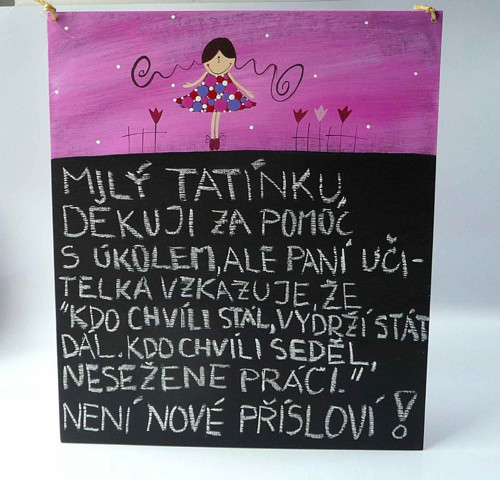 MILÝ TATÍNKU,
DĚKUJI ZA POMOC
S ÚKOLEM, ALE PANÍ UČI-
TELKA VZKAZUJE, ŽE
"KDO CHVÍLI STÁL, VYDRŽÍ STÁT
DÁL. KDO CHVÍLI SEDĚL,
NESEŽENE PRÁCI."
NENÍ NOVÉ PŘÍSLOVÍ!